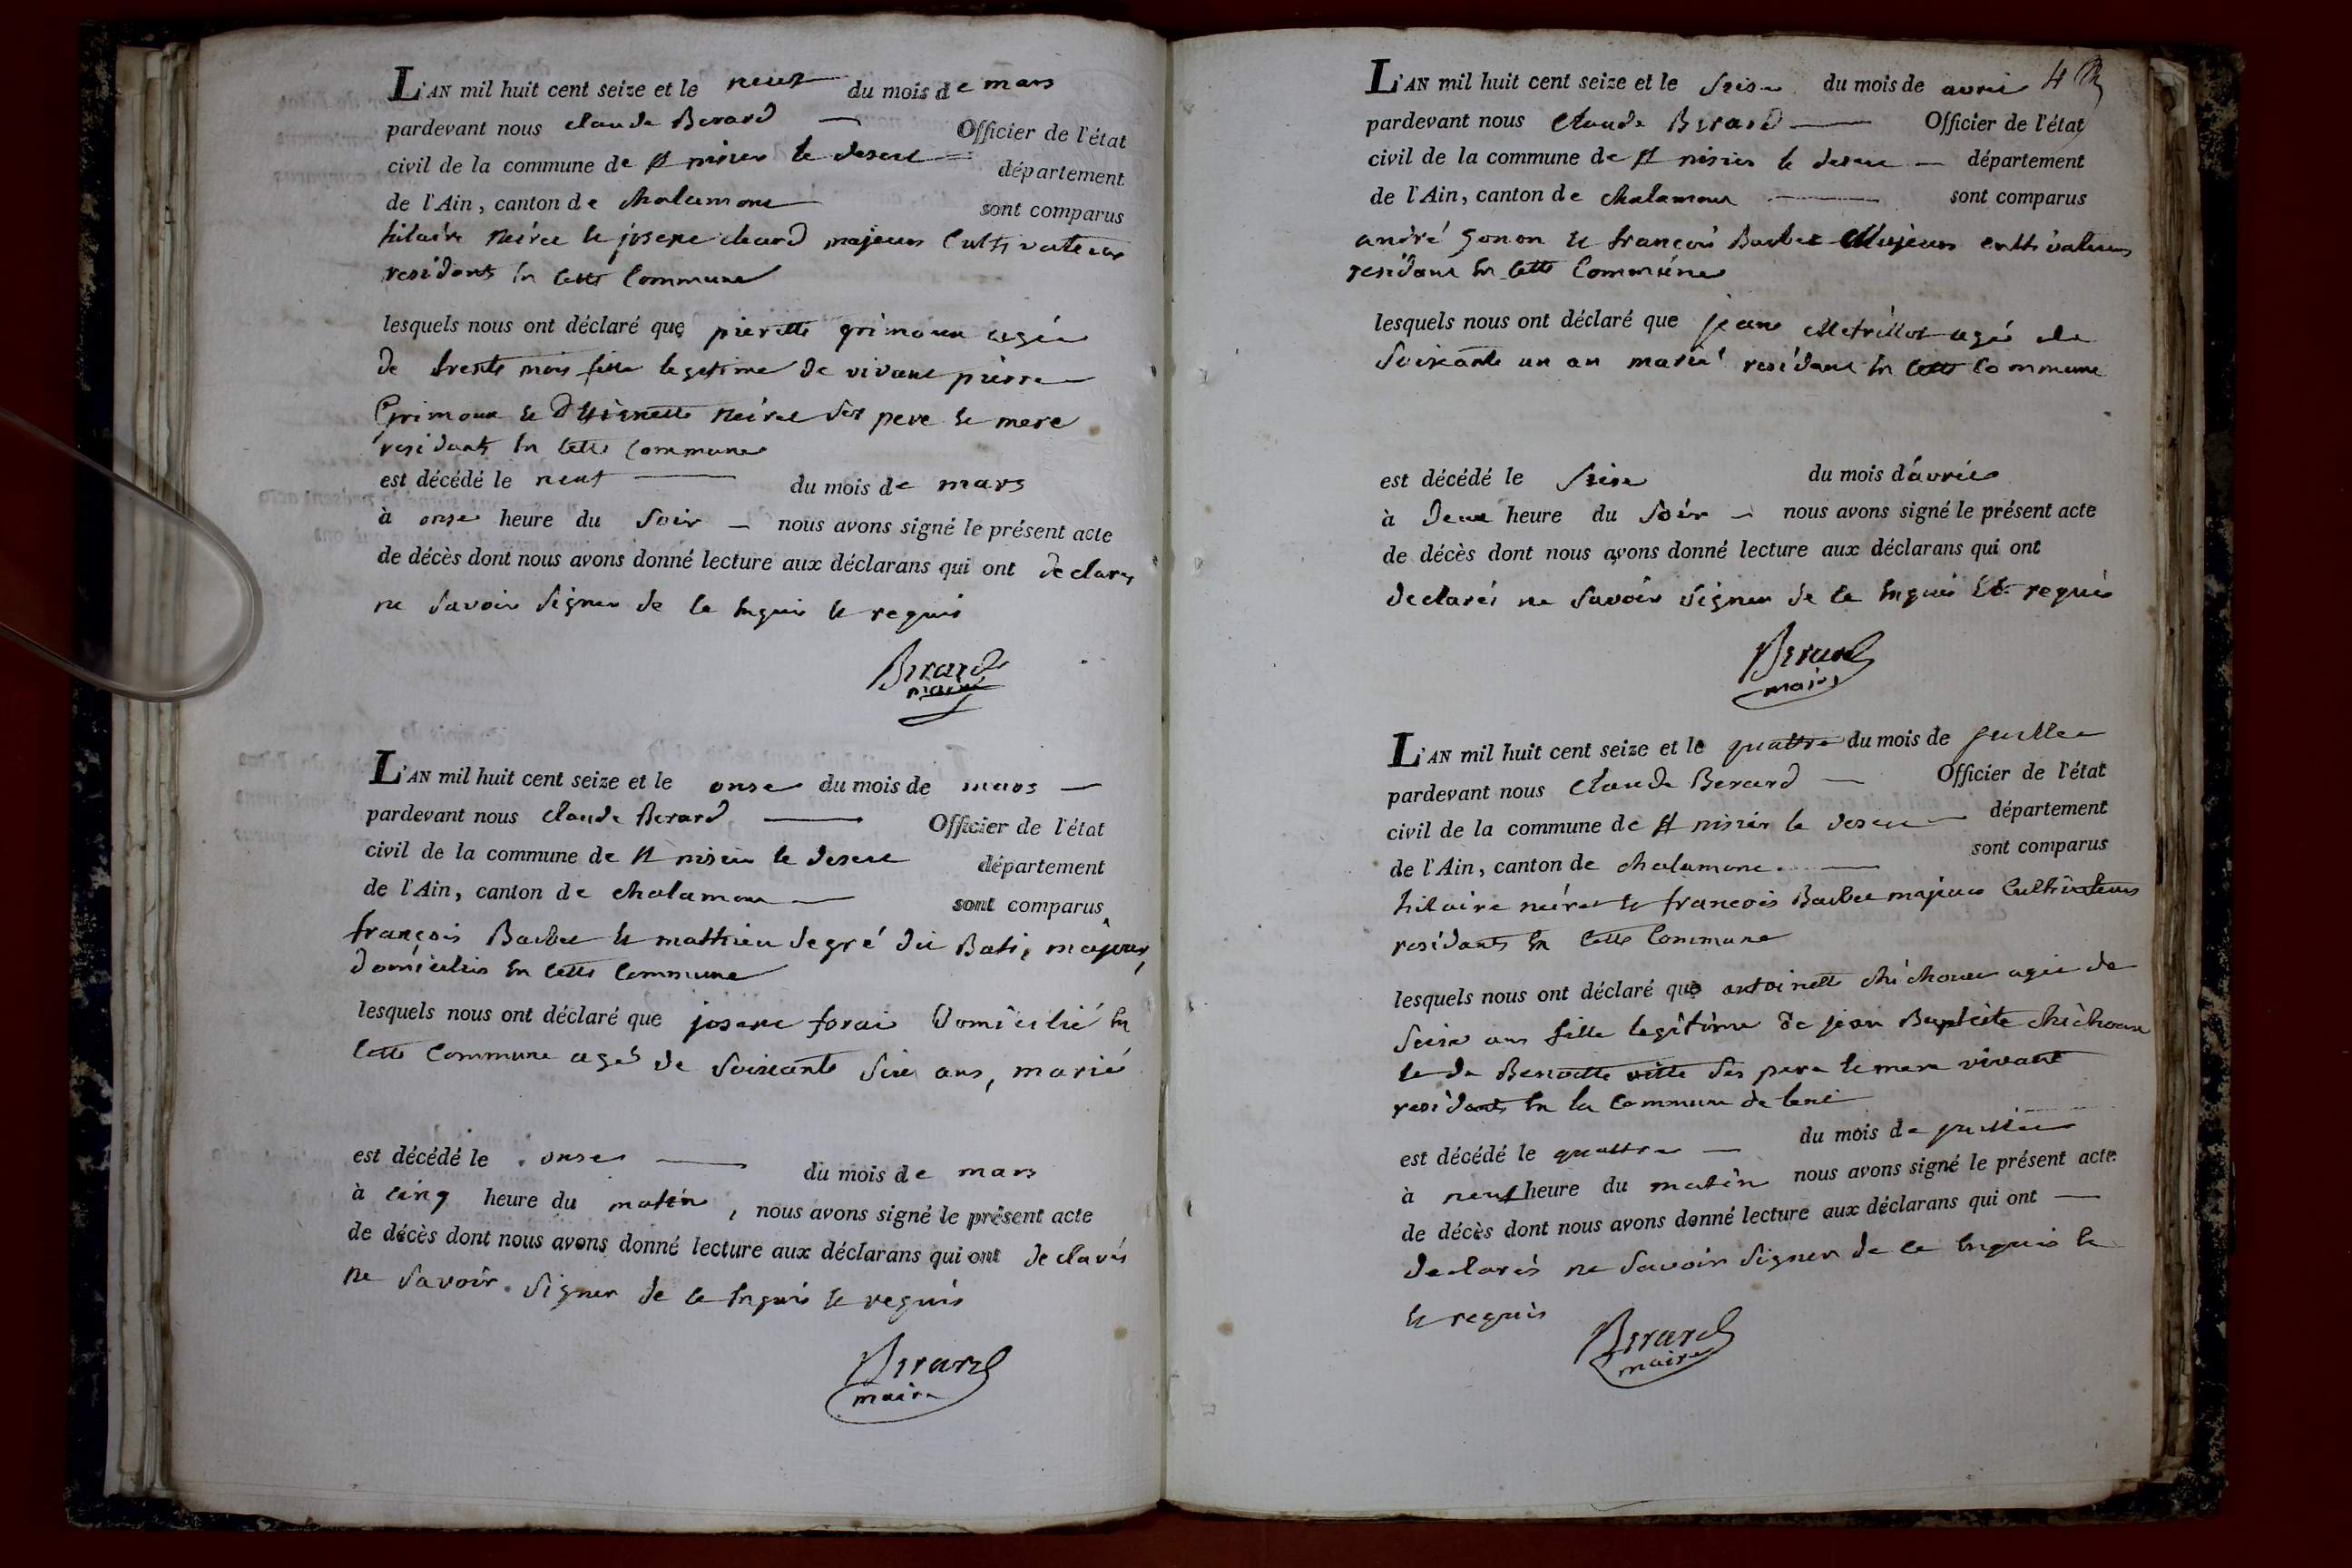 L'AN mil huit cent seize et le neuf du mois de mars
pardevant nous claude Berard — Officier de l'état
civil de la commune de st nisier le desert — département
de l'Ain, canton de chalamont sont comparus
hilaire neiret et josepe cheard majeurs Cultivateurs
residants en cette Commune
lesquels nous ont déclaré que pierette grimoux agée
de trente mois fille legetime de vivant pierre
Grimoux et neiret ses pere et mere
residants en cette Commune
est décédé le neuf — du mois de mars
à onse heure du soir — nous avons signé le présent acte
de décès dont nous avons donné lecture aux déclarans qui ont declarés
ne savoir signer de ce enquis et requis
Berard
maire
L'AN mil huit cent seize et le onse du mois de mars —
pardevant nous claude Berard — Officier de l'état
civil de la commune de st nisier le desert département
de l'Ain, canton de chalamont — sont comparus
françois Barbet et mathieu degré dit Bati, majeurs,
domiciliés en cette Commune
lesquels nous ont déclaré que josepe forai Domicilié en
Cette Commune agé de soixante six ans, marié
est décédé le onse — du mois de mars
à cinq heure du matin, nous avons signé le présent acte
de décès dont nous avons donné lecture aux déclarans qui ont declarés
ne savoir signer de ce enquis et requis
Berard
maire
4
L'AN mil huit cent seize et le seise du mois de avril
pardevant nous Claude Berard — Officier de l'état
civil de la commune de st nisier le desert — département
de l'Ain, canton de chalamont — sont comparus
andré gonon et françois Barbet Majeurs cultivateurs
residant en cette Commune
lesquels nous ont déclaré que jean Metrillot agé de
soixante un an marié residant en cette Commune
est décédé le seise du mois d'avril
à deux heure du soir — nous avons signé le présent acte
de décès dont nous avons donné lecture aux déclarans qui ont
declarés ne savoir signer de ce enquis et requis
Berard
maire
L'AN mil huit cent seize et le quattre du mois de juillet
pardevant nous Claude Berard — Officier de l'état
civil de la commune de st nisier le desert — département
de l'Ain, canton de chalamont — sont comparus
hilaire neiret et francois Barbet majeurs Cultivateurs
residants en cette Commune
lesquels nous ont déclaré que antoinette chichoux agée de
seise ans fille legitime de jean Baptiste chichoux
et de Benoitte vitte ses pere et mere vivant
residants en la Commune de
est décédé le quattre — du mois de juillet
à neuf heure du matin nous avons signé le présent acte
de décès dont nous avons donné lecture aux déclarans qui ont —
declarés ne savoir signer de ce enquis et
et requis
Berard
maire